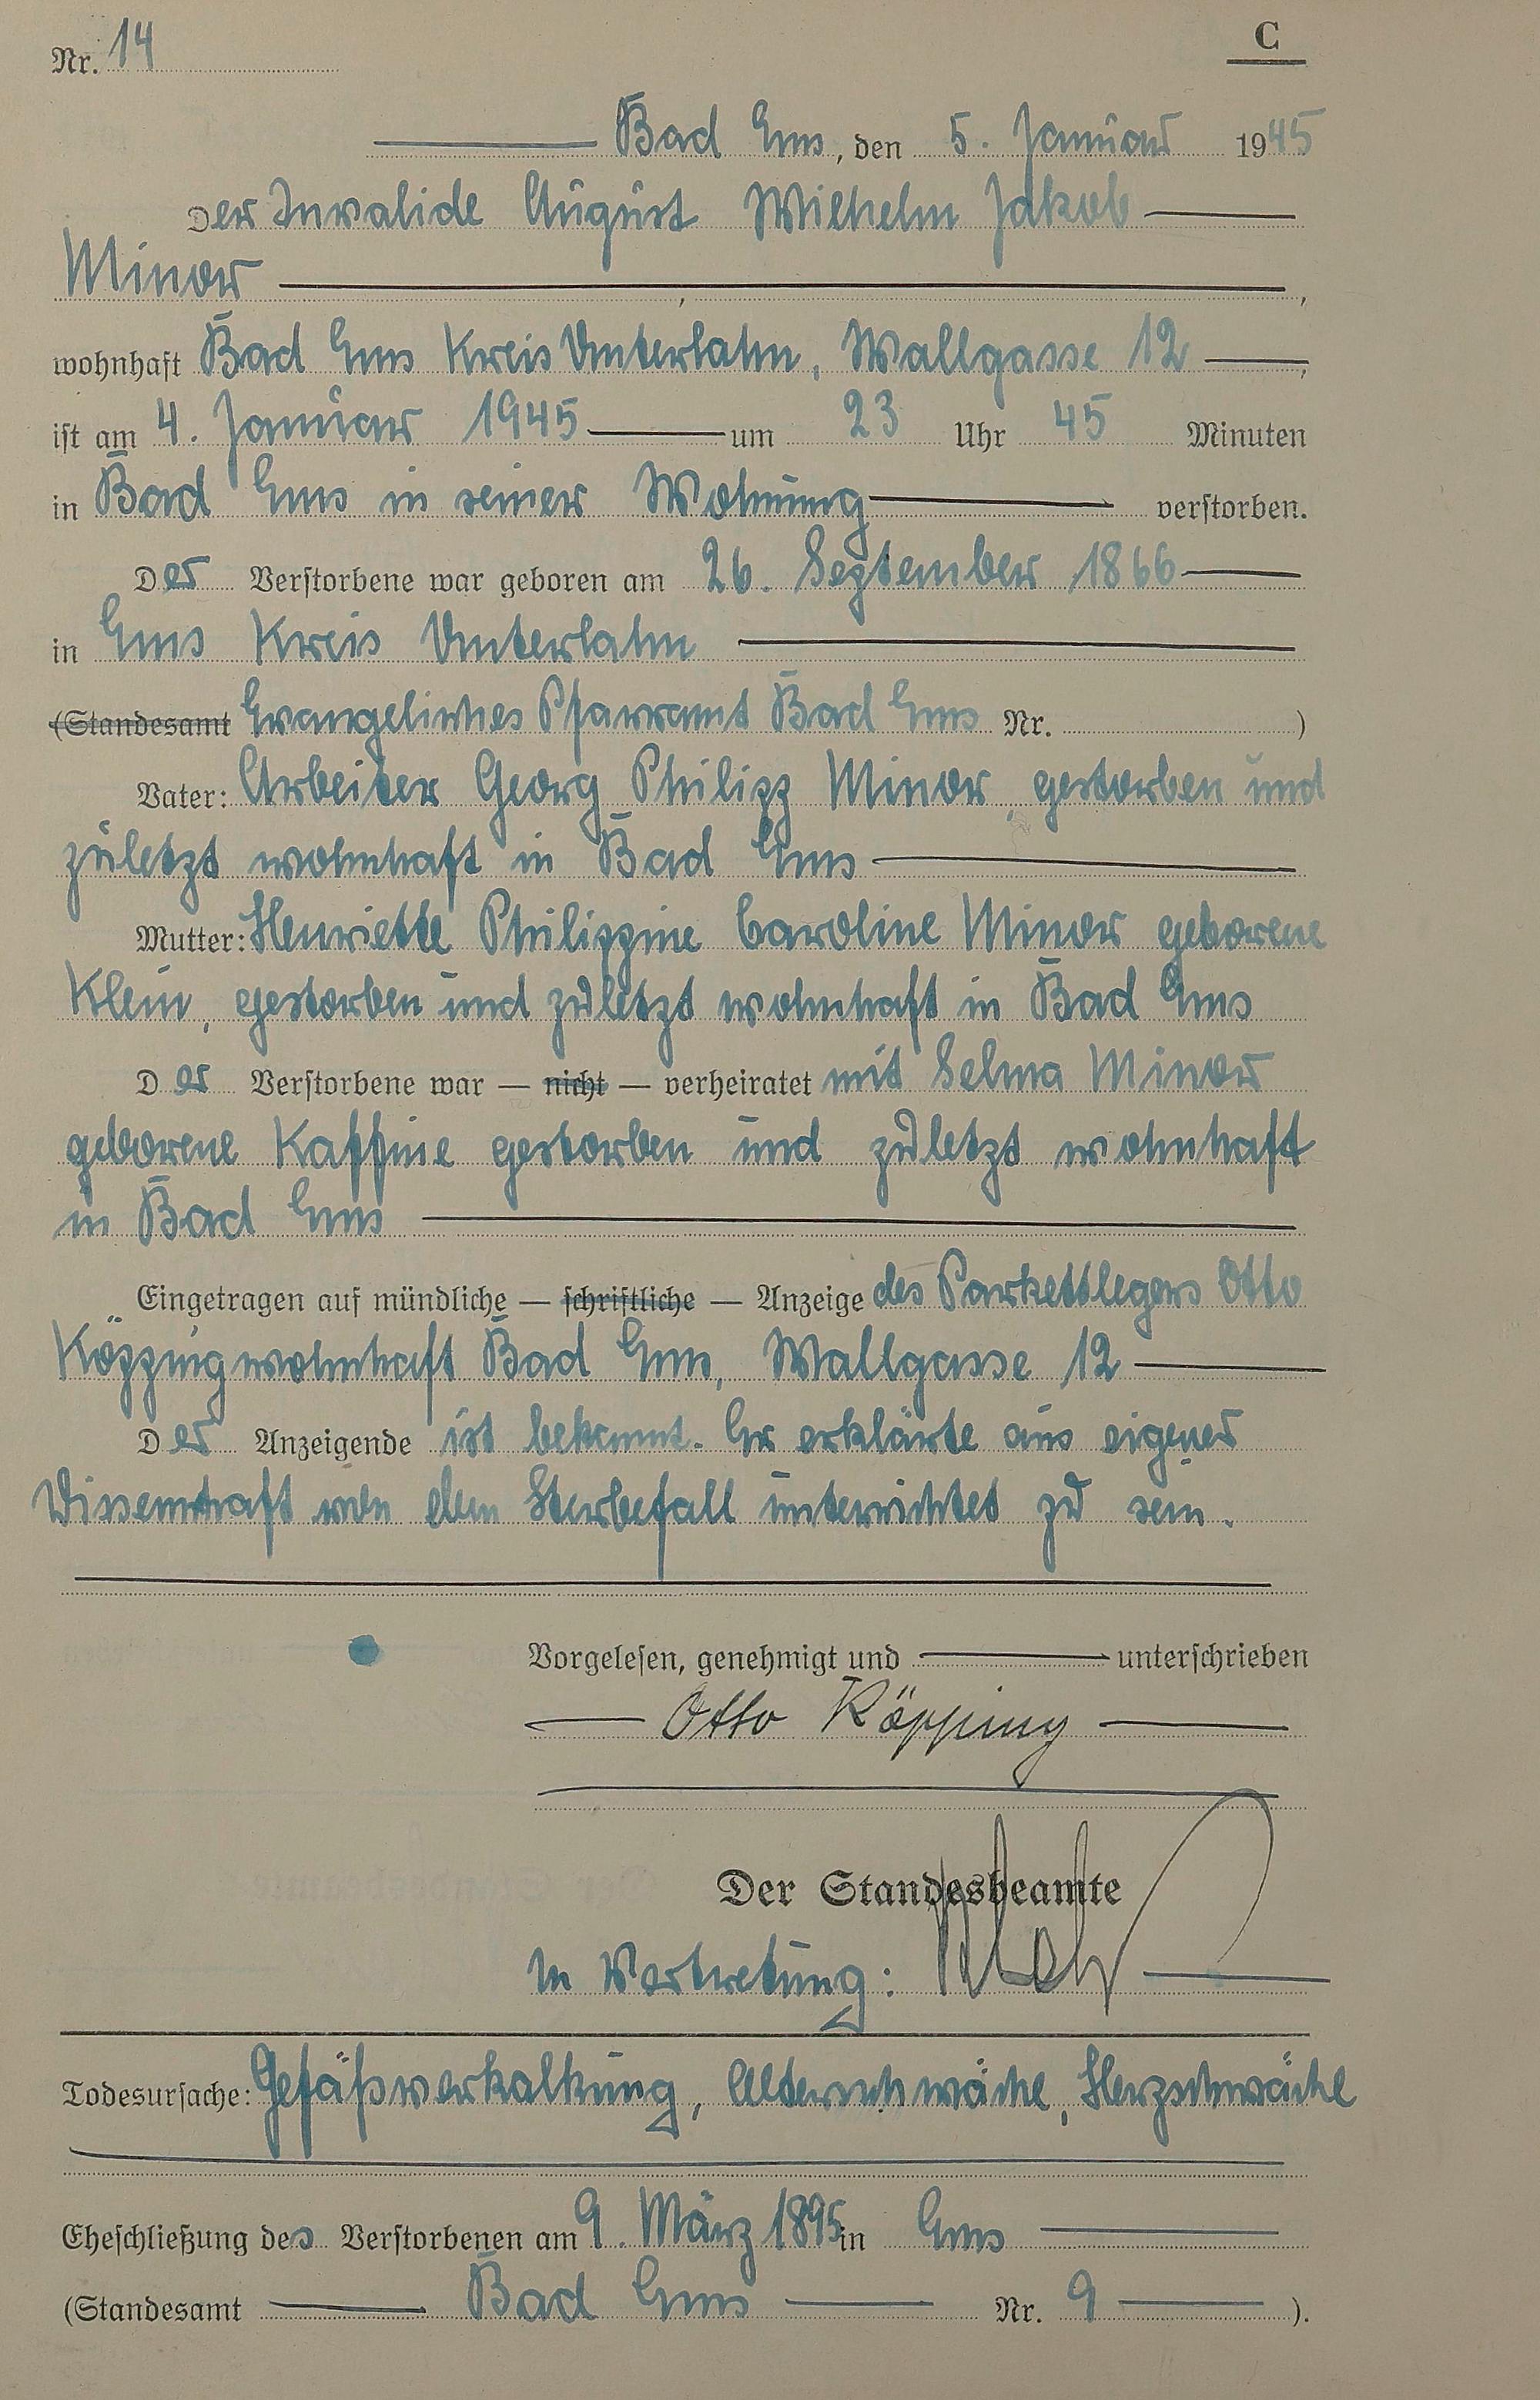 Nr. 14
C
Bad Ems, den 5. Januar 1945
Der Invalide August Wilhelm Jakob
Minor ,
wohnhaft Bad Ems Kreis Unterlahn, Wallgasse 12 ,
ist am 4. Januar 1945 um 23 Uhr 45 Minuten
in Bad Ems in seiner Wohnung verstorben.
Der Verstorbene war geboren am 26. September 1866
in Ems Kreis Unterlahn
(Standesamt Evangelisches Pfarramt Bad Ems Nr. )
Vater: Arbeiter Georg Philipp Minor, gestorben und
zuletzt wohnhaft in Bad Ems
Mutter: Henriette Philippine Caroline Minor geborene
Klein, gestorben und zuletzt wohnhaft in Bad Ems
Der Verstorbene war — nicht — verheiratet mit Selma Minor
geborene Kaffine gestorben und zuletzt wohnhaft
in Bad Ems
Eingetragen auf mündliche — schriftliche — Anzeige des Parkettlegers Otto
Köpping wohnhaft Bad Ems, Wallgasse 12
Der Anzeigende ist bekannt. Er erklärte aus eigener
Wissenschaft von dem Sterbefall unterrichtet zu sein.
Vorgelesen, genehmigt und unterschrieben
Otto Köpping
Der Standesbeamte
In Vertretung:
Todesursache: Gefäßverkalkung, Altersschwäche, Herzschwäche
Eheschließung des Verstorbenen am 9. März 1895 in Ems
(Standesamt Bad Ems Nr. 9 ).